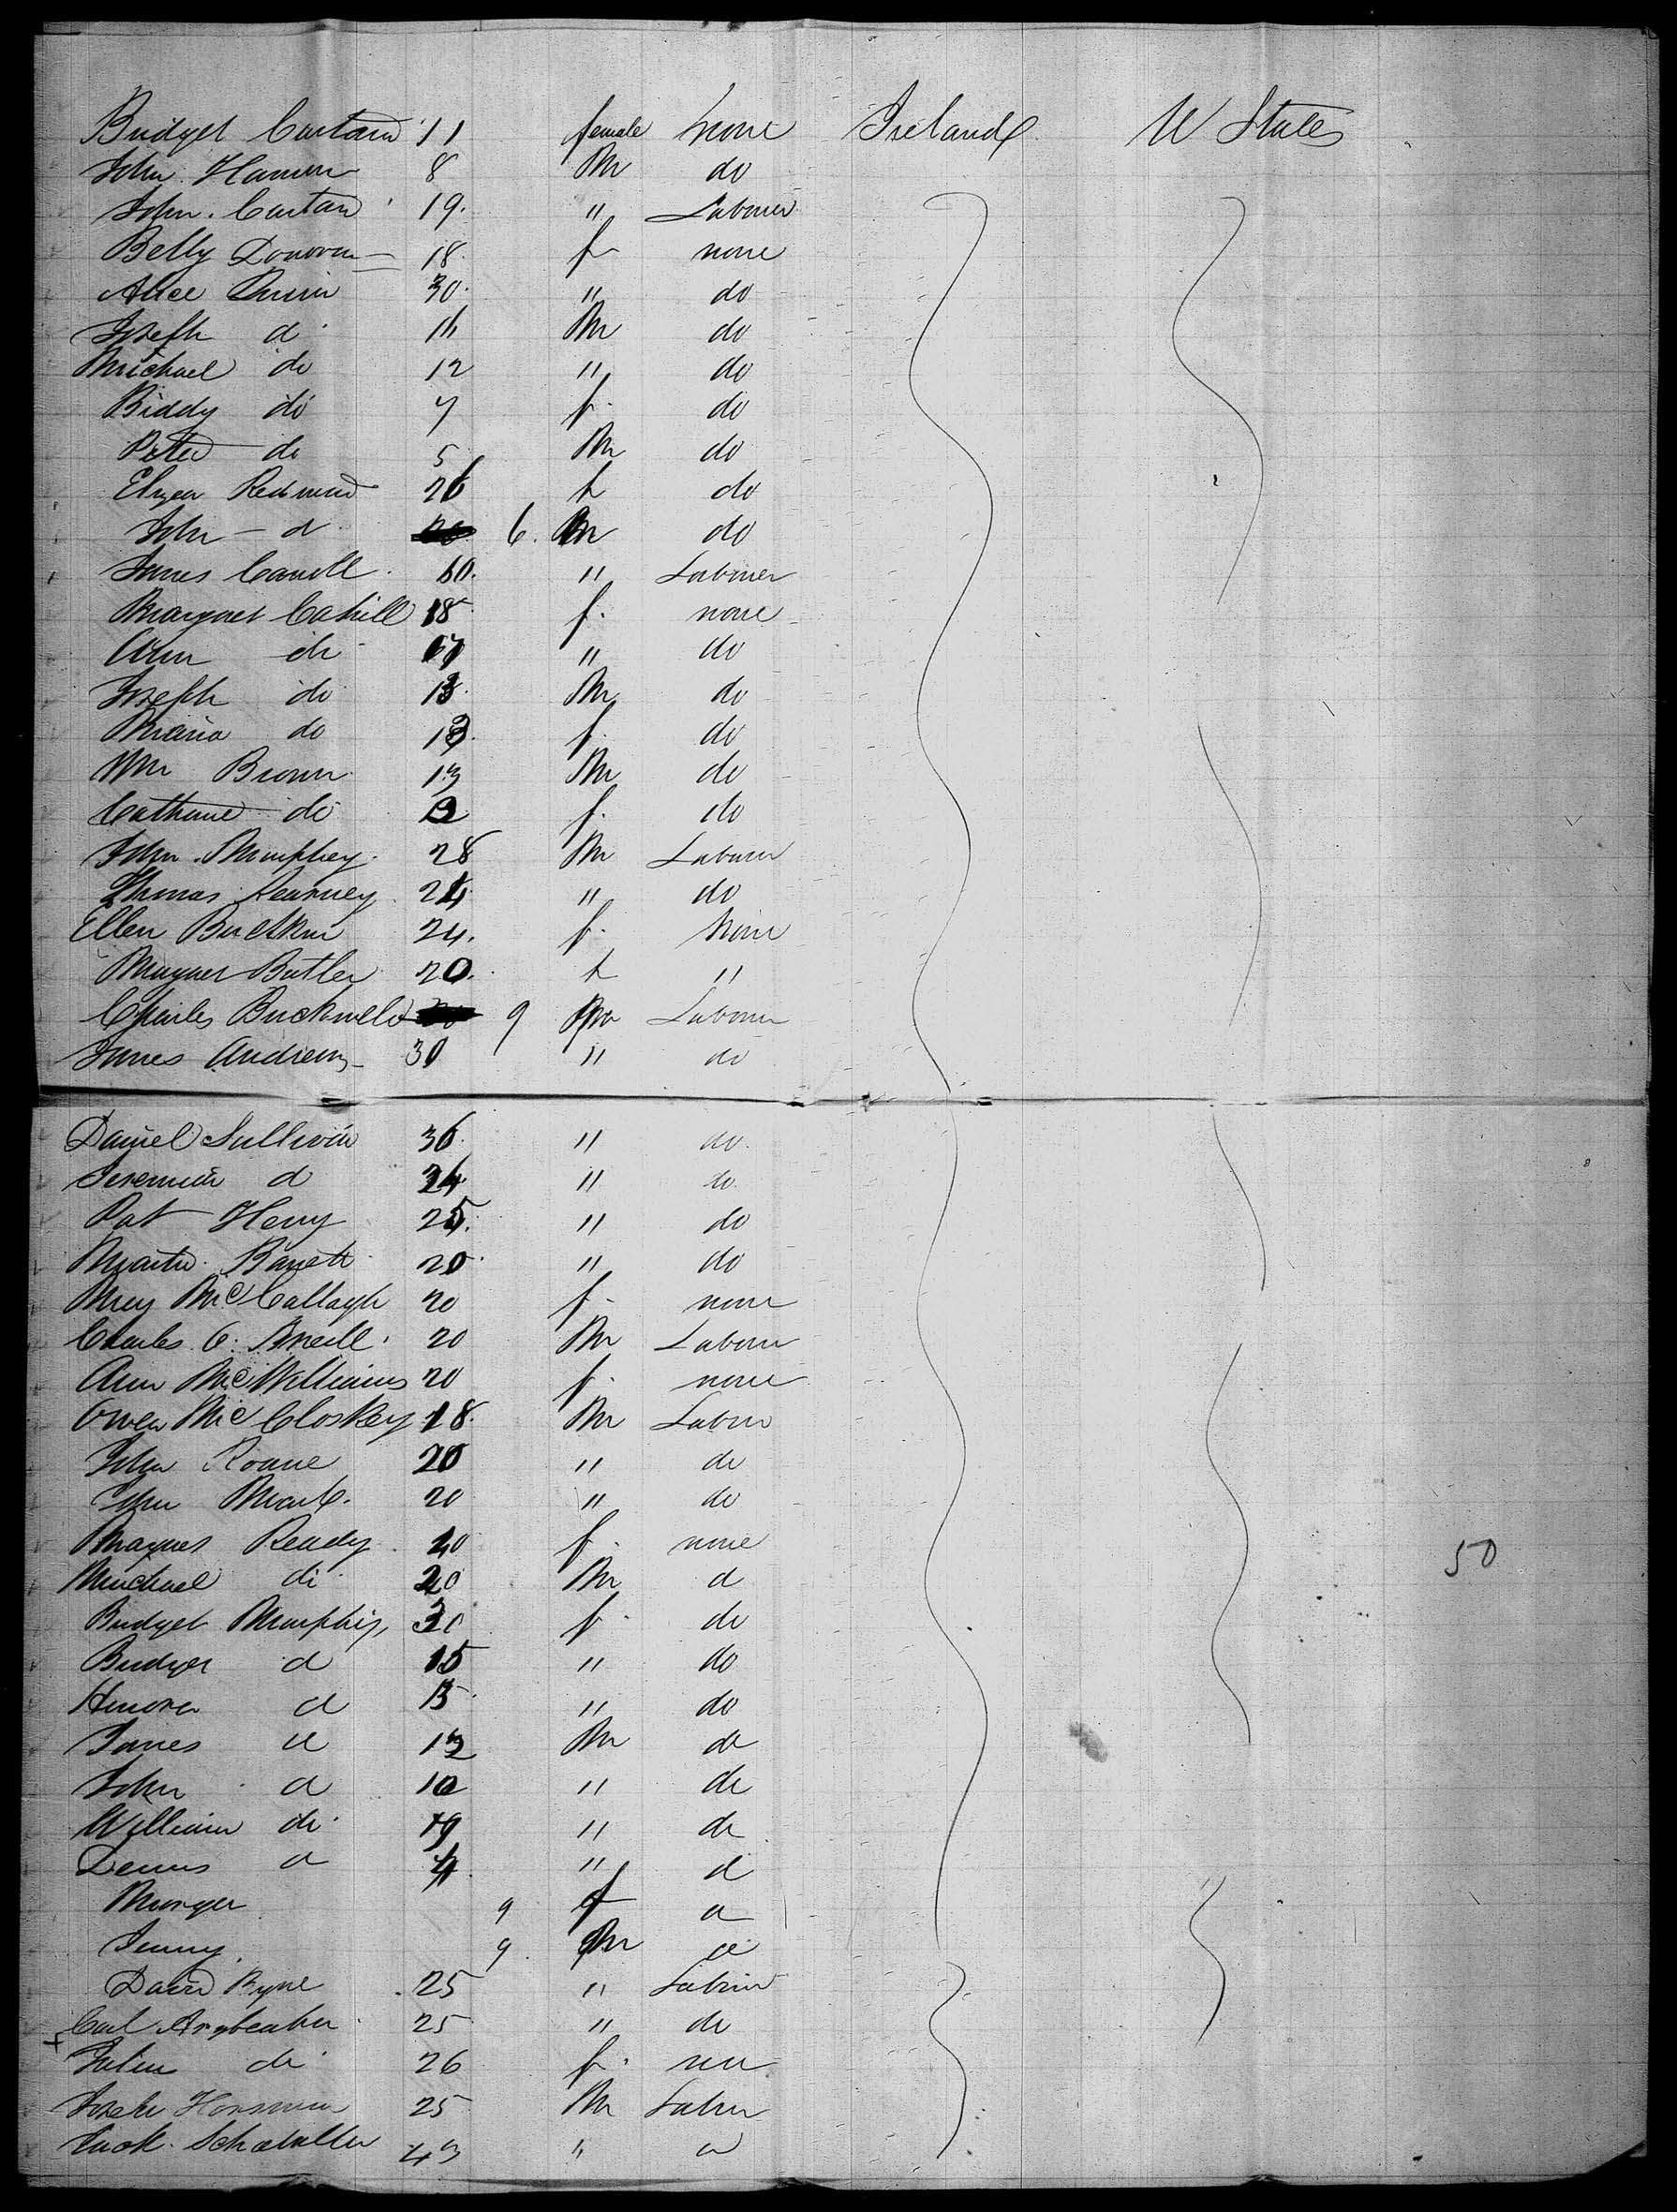 Bridget Cartan 11 female none Ireland U States
John Hannon 8 M do
John Cartan 19 " Laborer
Betty Donovan 18 f none
Alice Quinn 30 " do
Joseph d 14 M do
Michael do 12 " do
Biddy do 7 f do
Peter do 5 M do
Elizen Redmond 26 f do
John d 6 M do
James Caroll 60 " Laborer
Margret Cahill 18 f none
Ann do " do
Joseph do 13 M do
Maria do f do
Wm Brown 13 M do
Catharine do f do
John Murphey 28 M Laborer
Thomas Kearney 24 " do
Ellen 24 f none
Margret Butler 20 f "
Charles Bucknell 9 M Laborer
James Andrews 30 " do
Daniel Sullivan 36 " do
Jeremiah d 24 " do
Pat Henry 25 " do
Martin Barrett 20 " do
Mary McCallagh 20 f none
Charles O. Neill 20 M Laborer
Ann McWilliams 20 f none
Owen McCloskey 18 M Labor
John Roane 20 " do
John 20 " do
Margret Ready 40 f none
Michael do 20 M d
Bridget Murphy 30 f do
Bridget d 15 " do
Honora d 15 " do
James d M do
John d 10 " do
William do " do
Dennis d " d
9 f d
9 M d
David Byrne 25 " Laborer
Carl 25 " do
do 26 f non
25 M Labor
43 " d
50